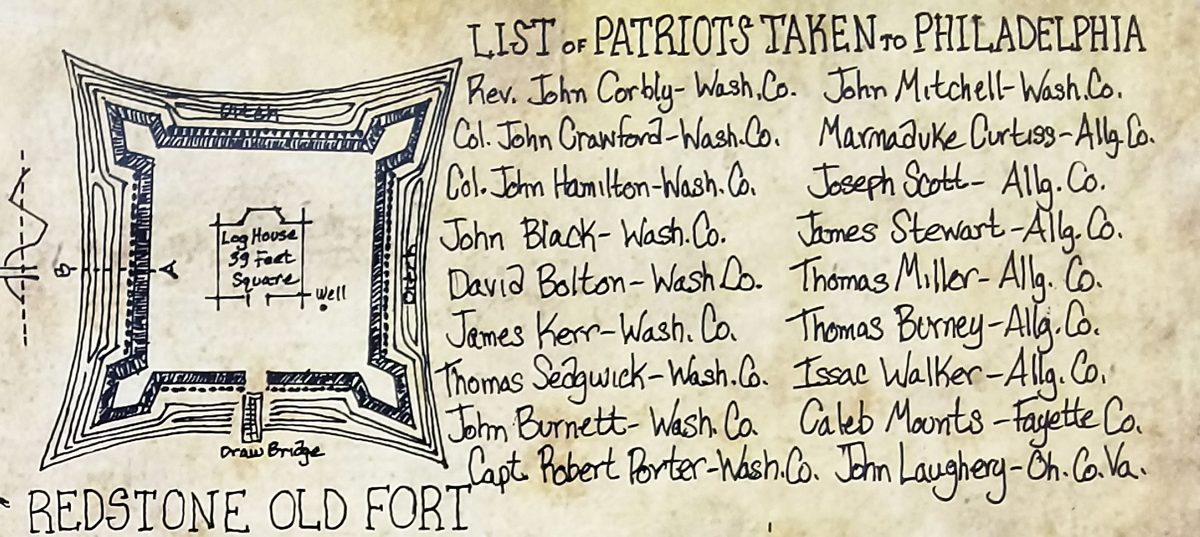 LIST OF PATRIOTS TAKEN TO PHILADELPHIA
Rev. John Corbly- Wash.Co.
Col. John Crawford-Wash.Co.
Col. John Hamilton-Wash.Co.
John Black- Wash.Co.
David Bolton- Wash Co.
James Kerr-Wash. Co.
Thomas Sedgwick-Wash.Co.
John Burnett- Wash. Co.
Capt. Robert Porter-Wash.Co.
John Mitchell-Wash.Co.
Marmaduke Curtiss-Allg.Co.
Joseph Scott- Allg. Co.
James Stewart-Allg.Co.
Thomas Miller-Allg. Co.
Thomas Burney-Allg.Co.
Issac Walker-Allg.Co.
Caleb Mounts -Fayette Co.
John Laughery-Oh.Co.Va.
Ditch
Log House
39 Feet
Square
Well
B
A
Ditch
Draw Bridge
REDSTONE OLD FORT